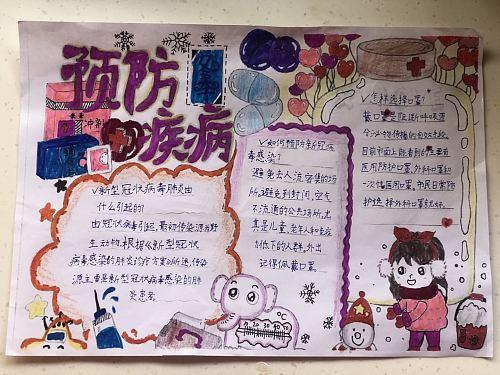 预防
疾病
冲剂
√新型冠状病毒肺炎由
什么引起的?
由冠状病毒引起,最初传染源为野
生动物,根据《新型冠状
病毒感染的肺炎诊疗方案》所述,传染
源主要是新型冠状病毒感染的肺
炎患者。
√如何预防新冠病
毒感染?
避免去人流密集的场
所。避免到封闭、空气
不流通的公共场所,出
其是儿童、老年人和免疫
力低下的人群,外出
记得佩戴口罩。
√怎样选择口罩?
戴口罩是阻断呼吸道
分泌物传播的有效手段
目前市面上能看到的主要有
医用防护口罩,外科口罩和
一次性医用口罩,市民日常防
护选择外科口罩就好。
℃